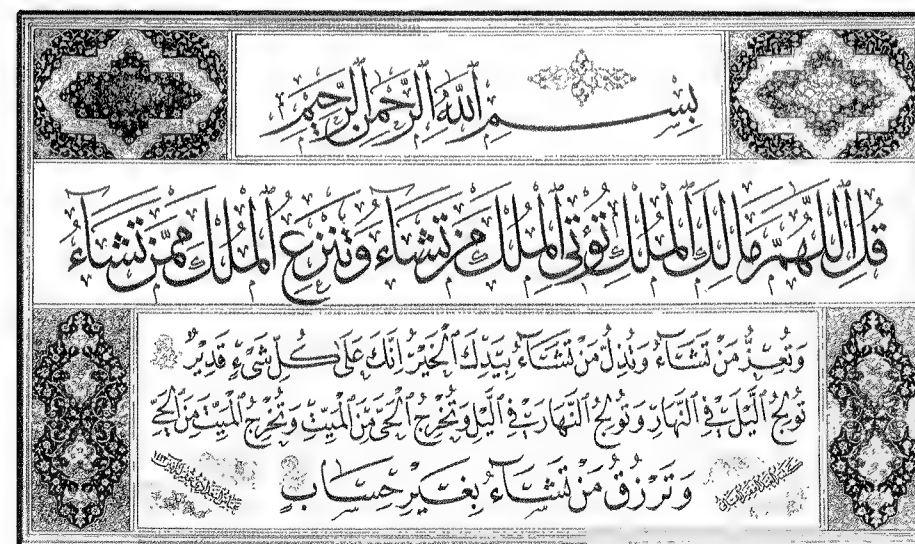 بِسْمِ ٱللَّهِ ٱلرَّحْمَٰنِ ٱلرَّحِيمِ
قُلِ ٱللَّهُمَّ مَالِكَ ٱلْمُلْكِ تُؤْتِي ٱلْمُلْكَ مَن تَشَآءُ وَتَنزِعُ ٱلْمُلْكَ مِمَّن تَشَآءُ
وَتُعِزُّ مَن تَشَآءُ وَتُذِلُّ مَن تَشَآءُ بِيَدِكَ ٱلْخَيْرُ إِنَّكَ عَلَىٰ كُلِّ شَيْءٍ قَدِيرٌ
تُولِجُ ٱلَّيْلَ فِي ٱلنَّهَارِ وَتُولِجُ ٱلنَّهَارَ فِي ٱلَّيْلِ وَتُخْرِجُ ٱلْحَيَّ مِنَ ٱلْمَيِّتِ وَتُخْرِجُ ٱلْمَيِّتَ مِنَ ٱلْحَيِّ
وَتَرْزُقُ مَن تَشَآءُ بِغَيْرِ حِسَابٍ